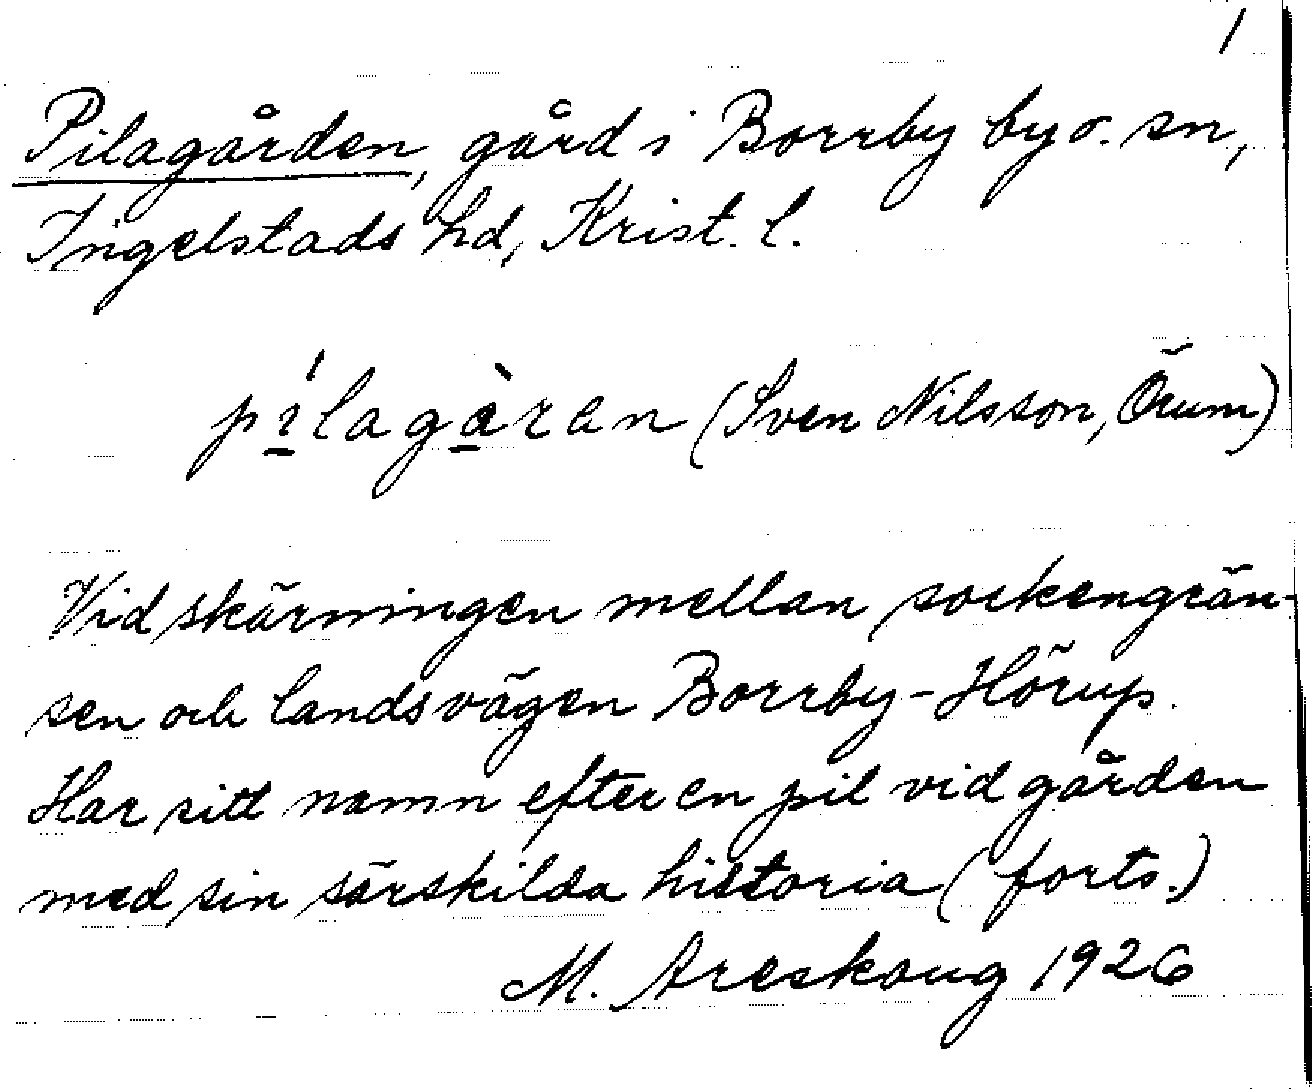 1
Pilagården, gård i Borrby by o. sn,
Ingelstads hd, Krist. l.
pílagàran (Sven Nilsson, Örum)
Vid skärningen mellan sockengrän-
sen och landsvägen Borrby-Hörup.
Har sitt namn efter en pil vid gården
med sin särskilda historia (forts.)
M. Areskoug 1926